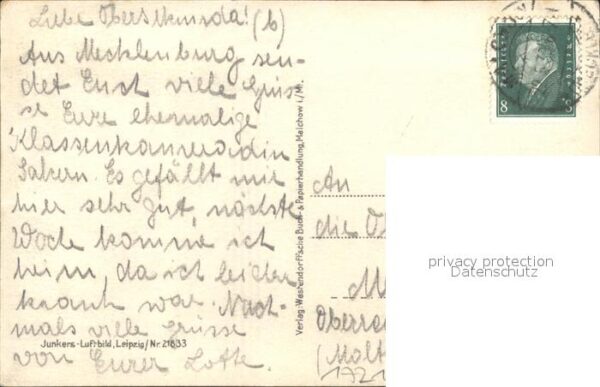 Liebe Obersekunda! (b)
Aus Mecklenburg sen-
det Euch viele Grüs-
se Eure ehemalige
Klassenkameradin
Es gefällt mir
hier sehr gut, nächste
Woche komme ich
heim, da ich leider
krank war. Noch-
mals viele Grüsse
von Eurer Lotte.
Junkers-Luftbild, Leipzig/Nr. 21833
Verlag: Westendorff'sche Buch- & Papierhandlung, Malchow i./M.
DEUTSCHES REICH
8
An
die O
M
Oberre
(Molt
privacy protection
Datenschutz